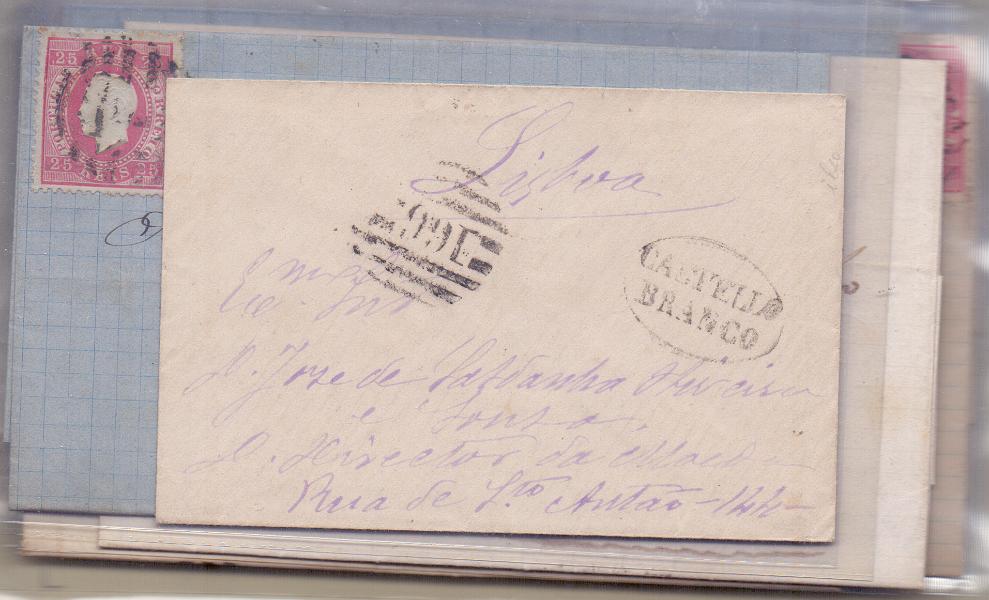 25
25
CORREIO
25
REIS
25
Lisboa
99
CASTELLO
BRANCO
Exmo
Snr
D. Jose de Saldanha Oliveira
e Souza,
D. Director da Moeda
Rua de Sto Antão - 144 -